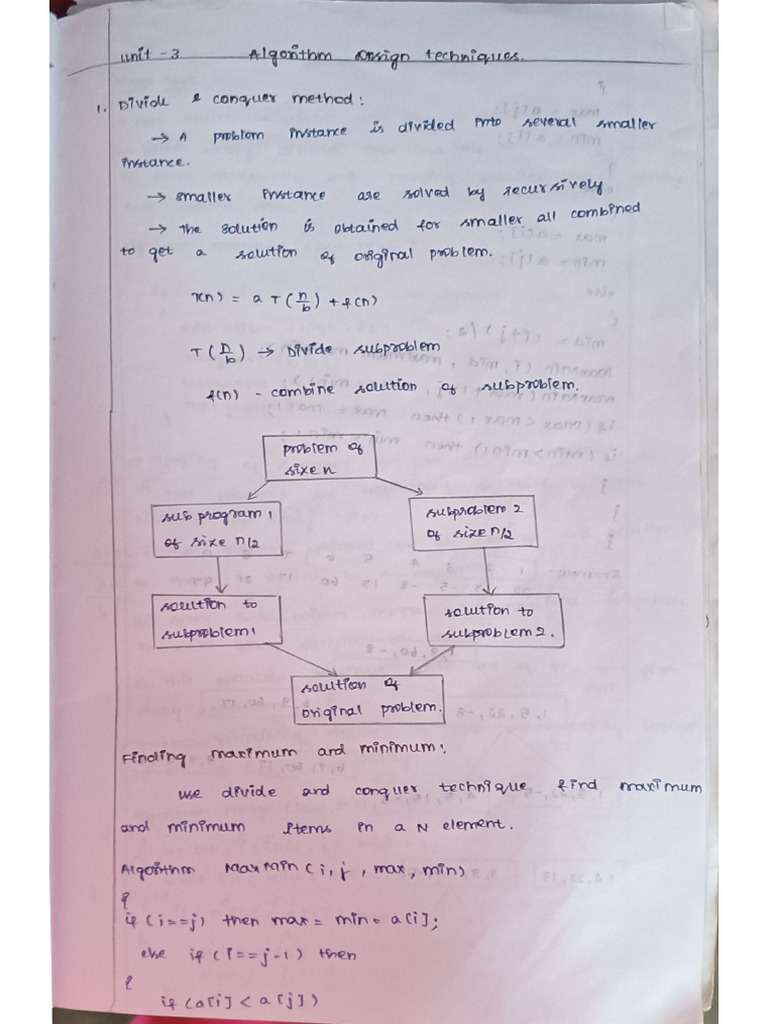 Unit - 3 Algorithm Design techniques.
1. Divide & conquer method:
→ A problem instance is divided into several smaller
instance.
→ smaller instance are solved by recursively
→ the solution is obtained for smaller all combined
to get a solution of original problem.
T(n) = a T(n/b) + f(n)
T(n/b) → Divide subproblem
f(n) - combine solution of subproblem.
problem of
size n
sub program 1
of size n/2
subproblem 2
of size n/2
solution to
subproblem 1
solution to
subproblem 2.
solution of
original problem.
Finding maximum and minimum:
use divide and conquer technique find maximum
and minimum items in a N element.
Algorithm MaxMin(i, j, max, min)
{
if (i==j) then max = min = a[i];
else if (i==j-1) then
{
if (a[i] < a[j])